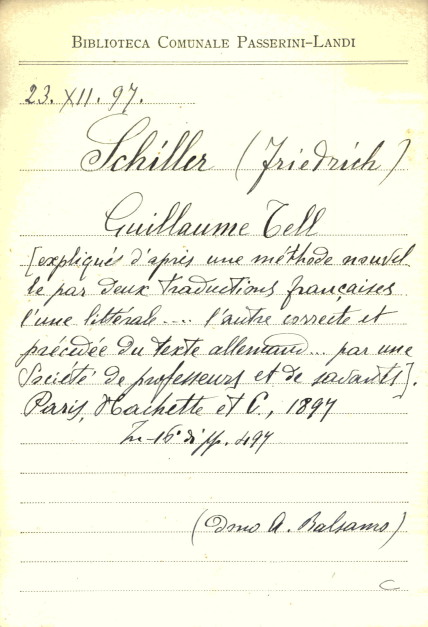 BIBLIOTECA COMUNALE PASSERINI-LANDI
23. XII. 97.
Schiller (Friedrich)
Guillaume Tell
[expliqués d'après une méthode nouvel
le par deux traductions françaises
l'une littérale.... l'autre correcte et
précédée du texte allemand... par une
Société de professeurs et de savants].
Paris, Hachette et C., 1897
In-16° di pp. 497
(Dono A. Balsamo)
C